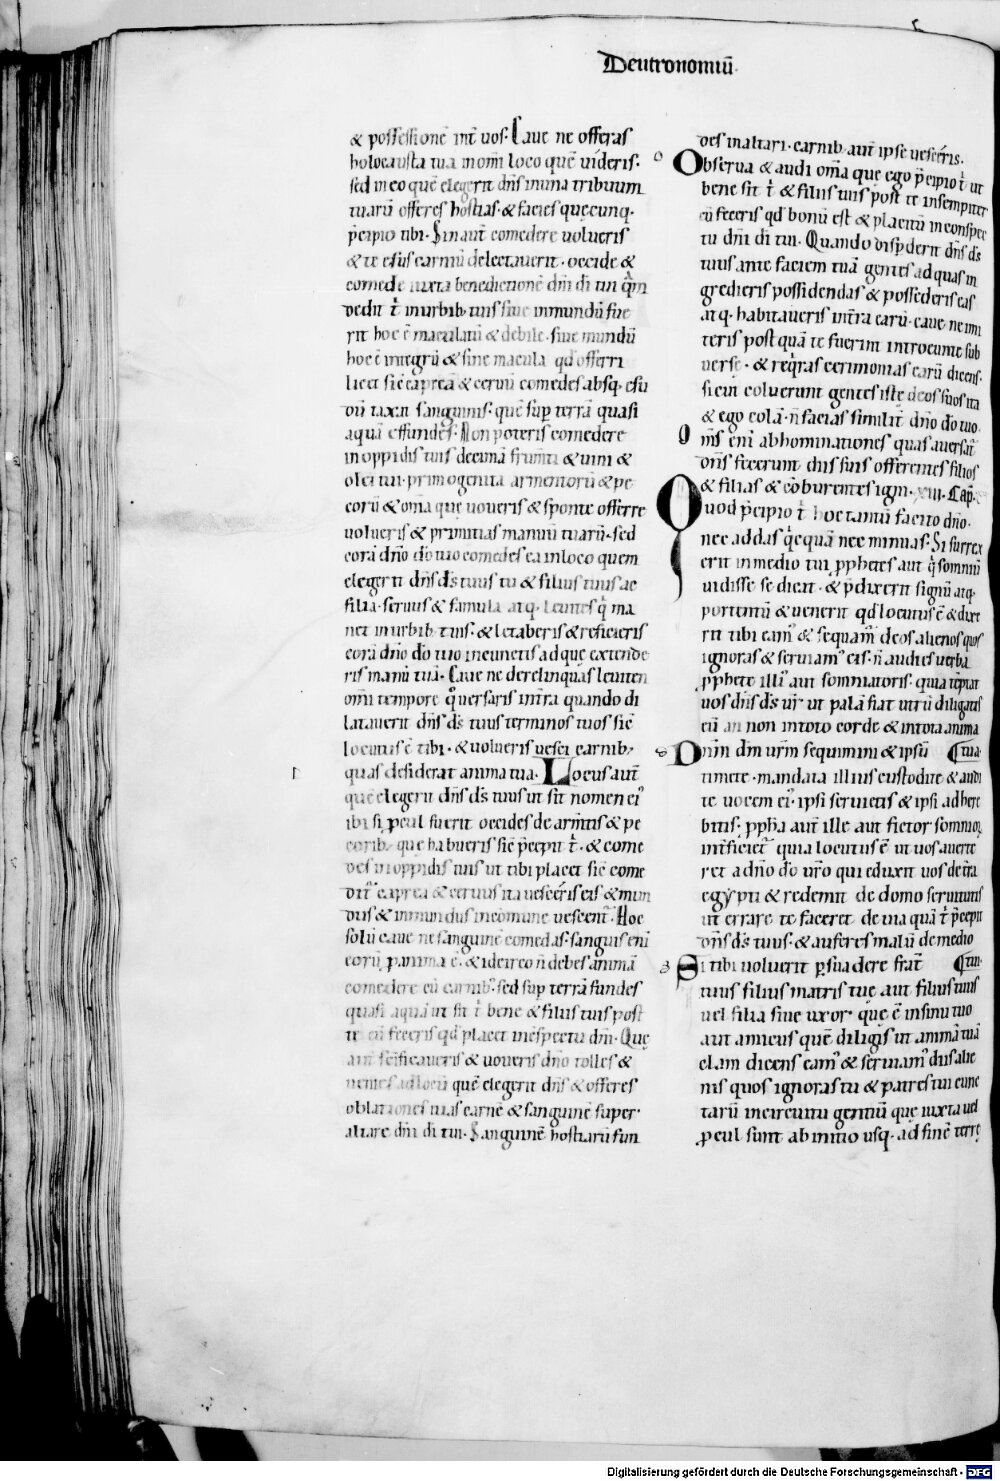 Deutronomiū.
& possessionē int̄ uos. Caue ne offeras
holocausta tua in om̄i loco quē uideris.
sed in eo quē elegerit dn̄s in una tribuum
tuarū offeres hostias. & facies quecunq.
p̄cipio tibi. Sin aut̄ comedere uolueris
& te esus carniū delectauerit. occide &
comede iuxta benedictionē dn̄i di tui qm̄
dedit t̄ in urbib. tuis siue inmundū fue
rit hoc ē maculatū & debile. siue mundū
hoc ē integrū & sine macula qd offerri
licet sic̄ caprea & ceruū comedes absq. esu
sanguinis. quē sup̄ terrā quasi
aquā effundes. Non poteris comedere
in oppidis tuis decimā frum̄ti & uini &
olei tui. primogenita armentorū & pe
corū & om̄a que uoueris & sponte offerre
uolueris & primitias manuū tuarū. sed
corā dn̄o dō tuo comedes ea in loco quem
elegerit dn̄s ds̄ tuus tu & filius tuus ac
filia. seruus & famula atq. leuites q̄ ma
net in urbib. tuis. & letaberis & reficieris
corā dn̄o dō tuo in cunctis ad que extende
ris manū tuā. Caue ne derelinquas leuiten
om̄i tempore q̄ uersaris in tr̄a quando di
latauerit dn̄s ds̄ tuus terminos tuos sic̄
locutus ē tibi. & uolueris uesci carnib.
quas desiderat anima tua. Locus aut̄
quē elegerit dn̄s ds̄ tuus ut sit nomen ei'
ibi si p̱cul fuerit occides de arm̄tis & pe
corib. que habueris sic̄ p̄cepit t̄. & come
des in oppidis tuis ut tibi placet sic̄ come
dit' caprea & ceruus ita uescēris eis & mun
dus & inmundus incomune uescent'. Hoc
solū caue ne sanguinē comedas. sanguis eni
corū p̱ anima ē. & idcirco n̄ debes animā
comedere cū carnib'. sed sup̄ terrā fundes
quasi aquā ut sit t̄ bene & filiis tuis post
te cū feceris qd placet in cōspectu dn̄i. Que
aut̄ sc̄ificaueris & uoueris dn̄o tolles &
uenies ad locū quē elegerit dn̄s & offeres
oblationes tuas carnē & sanguinē super.
altare dn̄i di tui. Sanguinē hostiarū fun
des in altari. carnib. aut̄ ipse uescēris.
Obserua & audi om̄a que ego p̄cipio t̄ ut
bene sit t̄ & filiis tuis post te in sempiter
cū feceris qd bonū est & placitū in conspec
tu dn̄i di tui. Quando disp̱derit dn̄s ds̄
tuus ante faciem tuā gentes ad quas in
gredieris possidendas & possederis eas
atq. habitaueris in tr̄a earū. caue ne imi
teris postquā te fuerint introeunte sub
uerse. & req̄ras cerimonias earū dicens.
sicut coluerunt gentes iste deos suos ita
& ego colā. n̄ facias similit̄ dn̄o dō tuo.
Om̄s eni abhominationes quas auersat'
dn̄s fecerunt diis suis offerentes filios
& filias & cōburentes igni. xiii. Cap̄.
Quod p̄cipio t̄ hoc tantū facito dn̄o.
nec addas q̄cquā nec minuas. Si surrex
erit in medio tui p̱phetes aut q̄ somniū
uidisse se dicat. & p̄dixerit signū atq.
portentū & uenerit qd locutus ē & dixe
rit tibi eam' & sequam' deos alienos quos
ignoras & seruiam' eis. n̄ audies uerba
p̱phete illi' aut somniatoris. quia tēptat
uos dn̄s ds̄ ur̄. ut palā fiat utrū diligatis
eū an non in toto corde & in tota anima
Dn̄m dm̄ ur̄m sequimini & ipsū ¶tua.
timete. mandata illius custodite & audi
te uocem ei'. ipsi seruietis & ipsi adhere
bitis. p̱pha aut̄ ille aut fictor somnior̄
int̄ficiet' quia locutus ē ut uos auerte
ret a dn̄o dō ur̄o qui eduxit uos de tr̄a
egypti & redemit de domo seruitutis
ut errare te faceret de uia quā t̄ p̄cepit
dn̄s ds̄ tuus. & auferes malū de medio
Si tibi uoluerit p̱suadere frat̄ ¶tui.
tuus filius matris tue aut filius tuus
uel filia siue uxor. que ē in sinu tuo
aut amicus quē diligis ut animā tuā
clam dicens eam' & seruiam' diis alie
nis quos ignoras tu & patres tui cunc
tarū in circuitu gentiū que iuxta uel
p̱cul sunt ab initio usq. ad finē terre
Digitalisierung gefördert durch die Deutsche Forschungsgemeinschaft - DFG